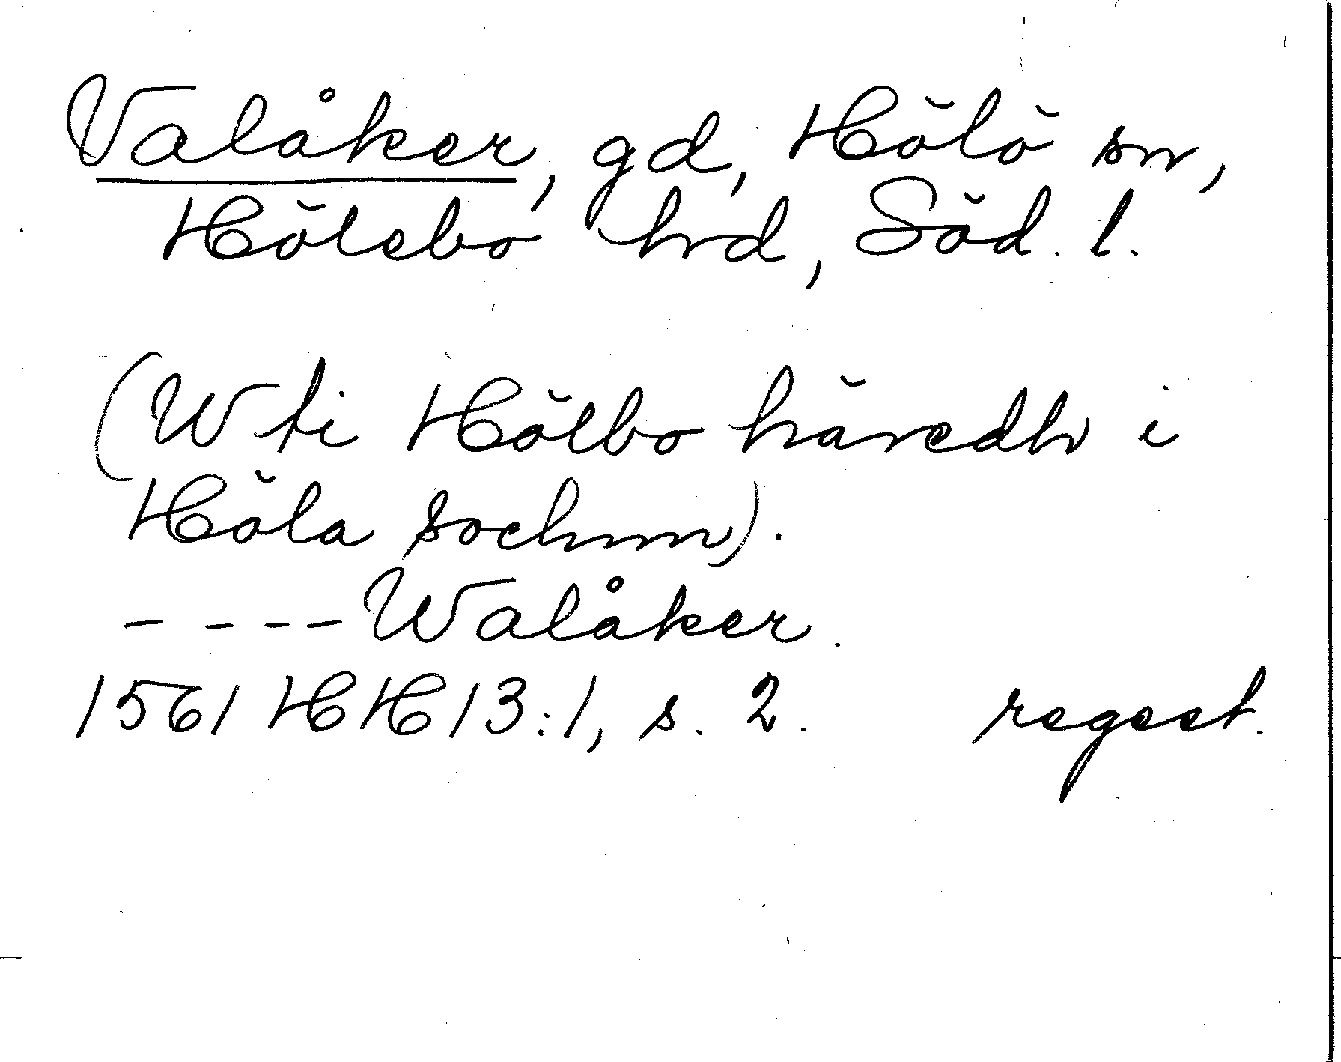 Valåker, gd, Hölö sn,
Hölebo hd, Söd. l.
(Wti Hölbo häredh i
Höla sochnn).
- - - - Walåker.
1561 HH 13:1, s. 2. regest.